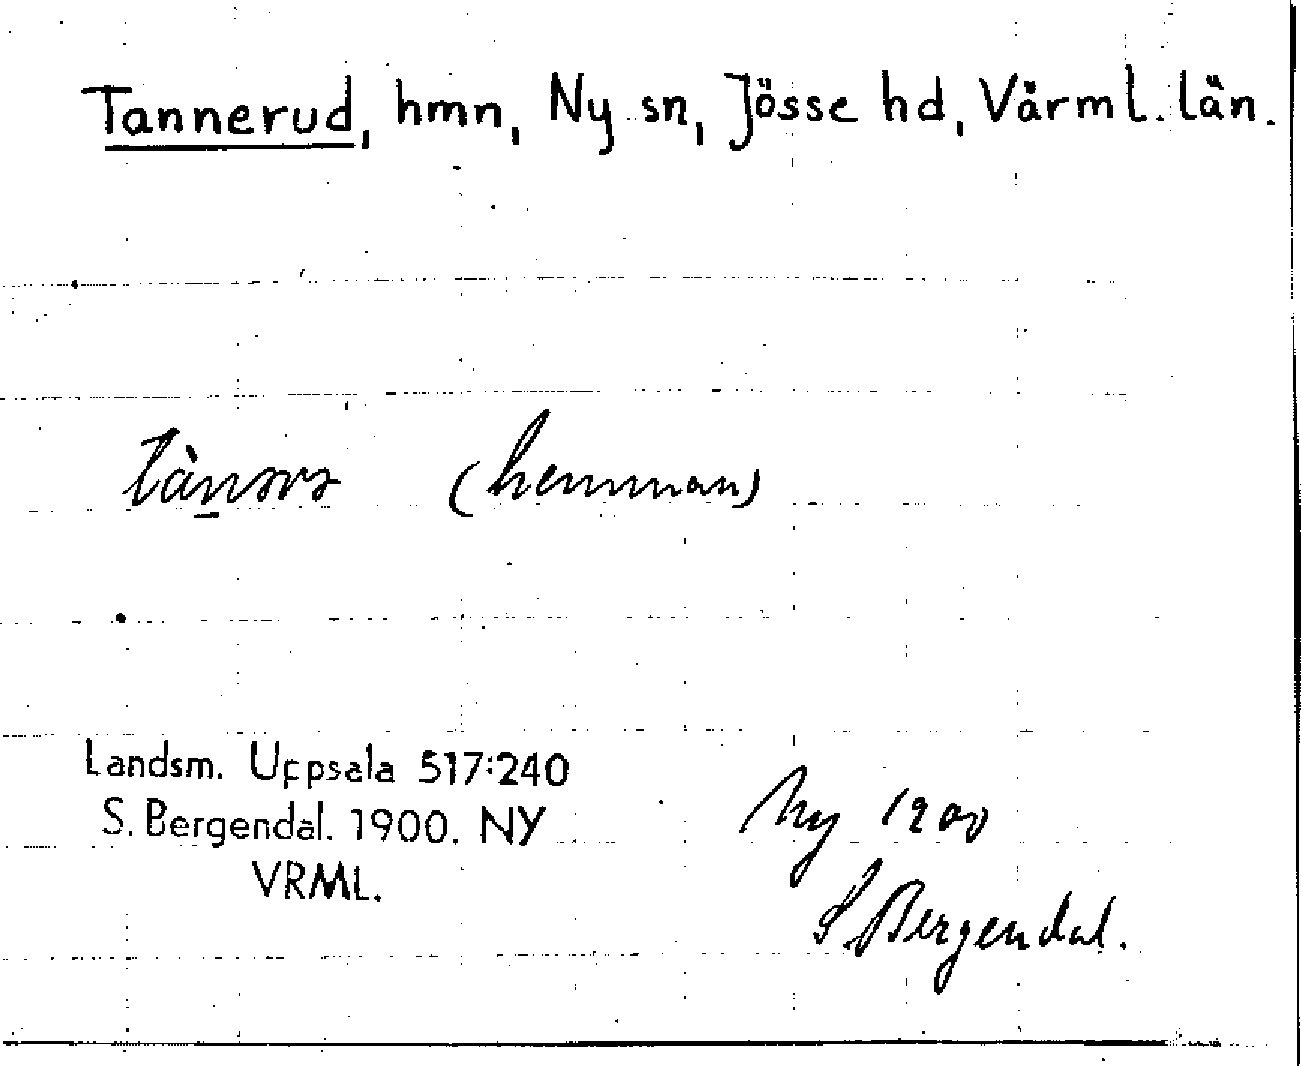 Tannerud, hmn, Ny sn, Jösse hd, Värml. län.
(hemman)
Landsm. Uppsala 517:240
S. Bergendal. 1900. NY
VRML.
Ny 1900
S. Bergendal.